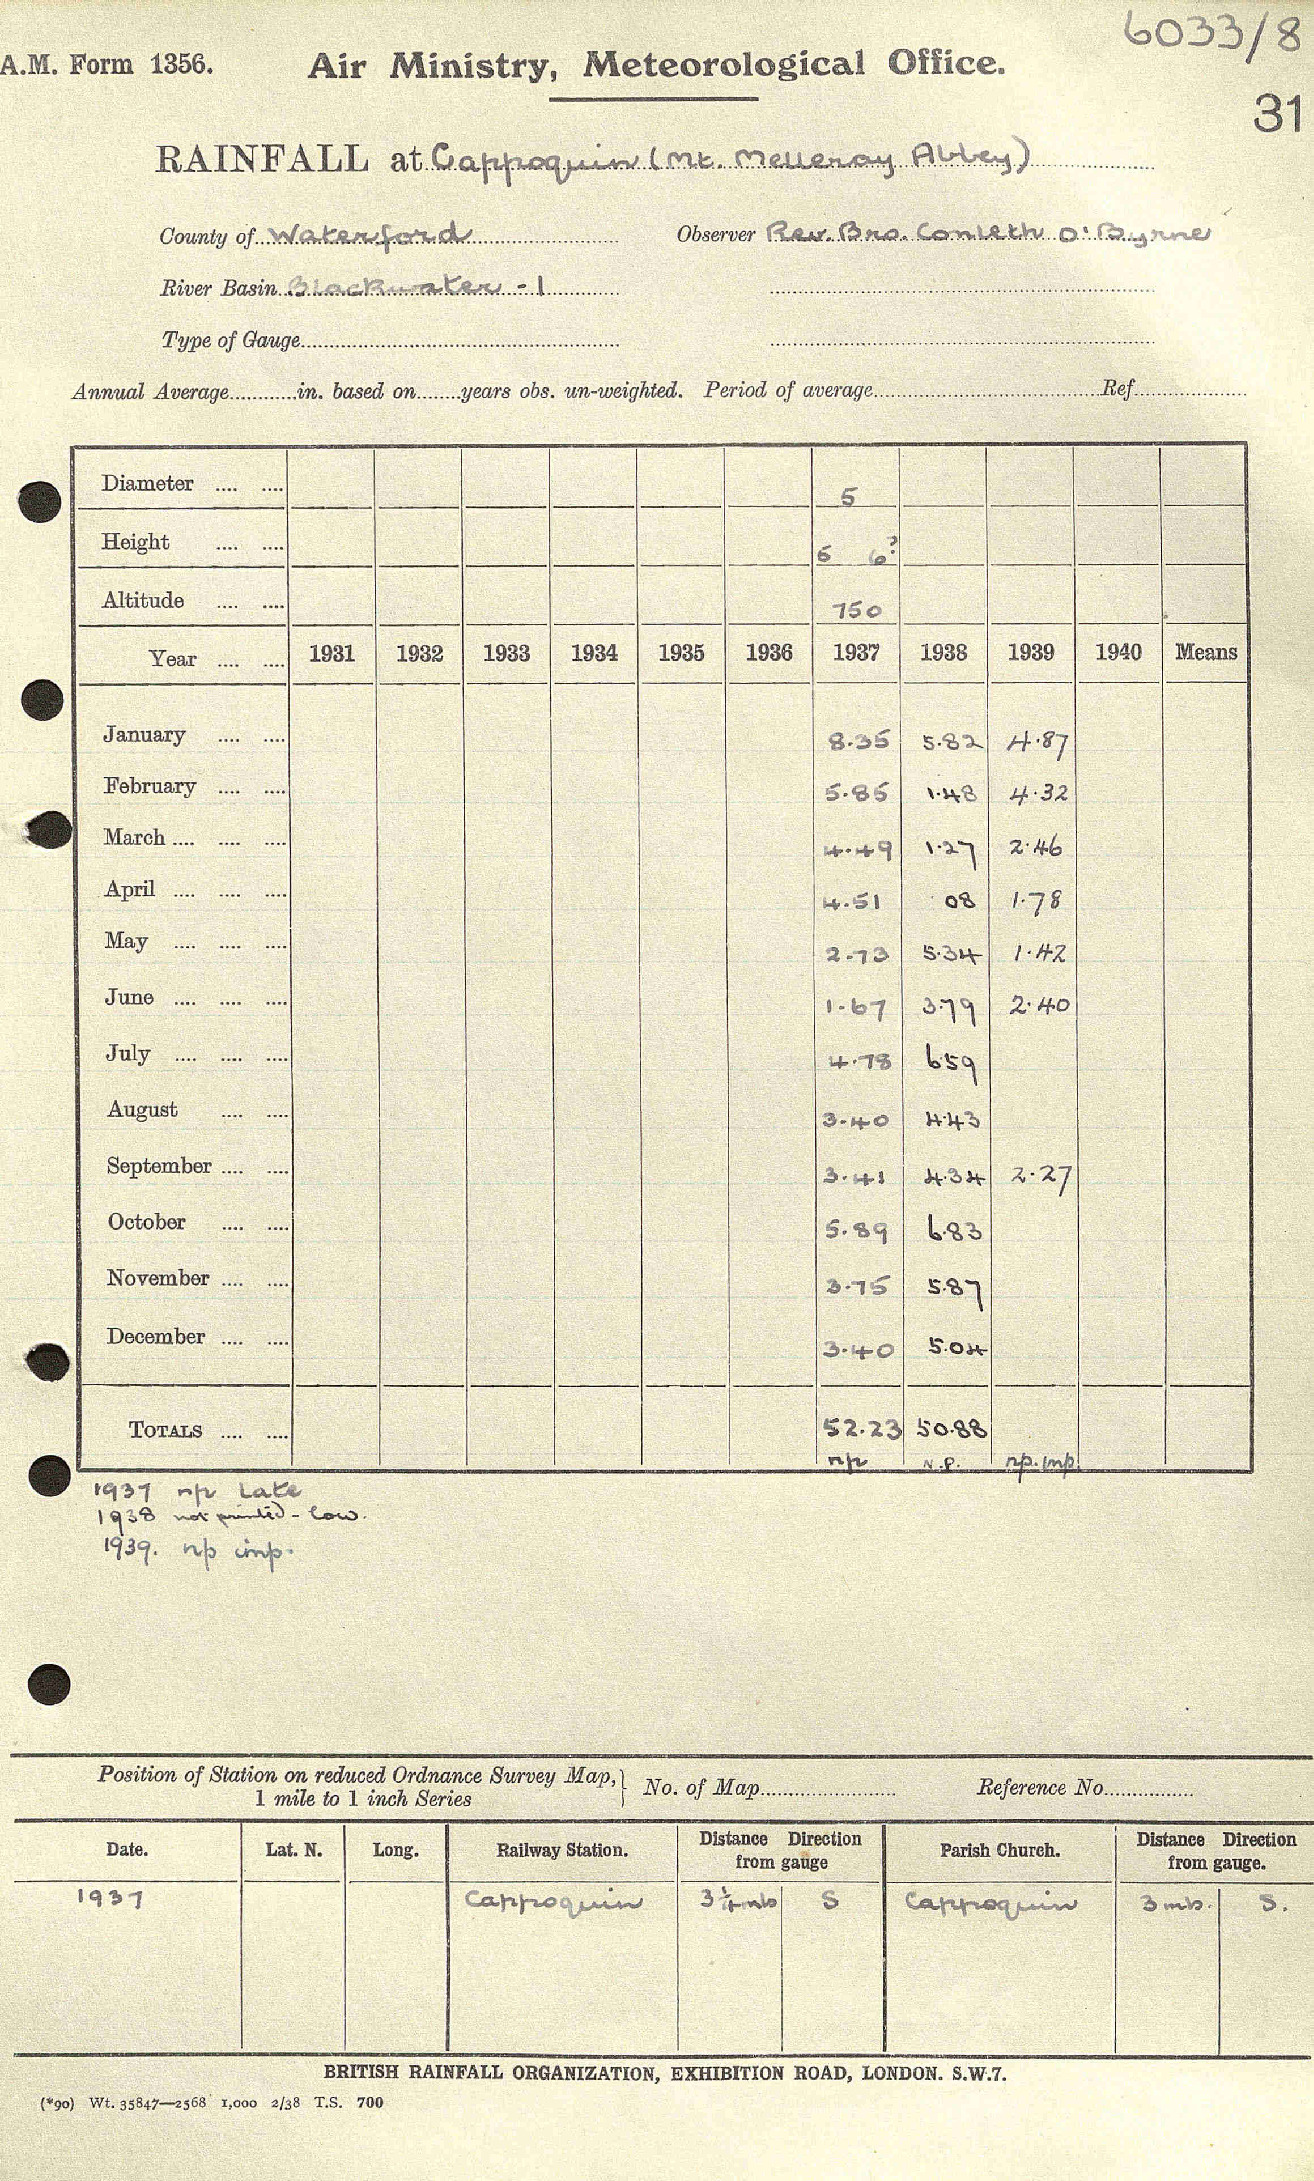 6033/8
A.M. Form 1356. Air Ministry, Meteorological Office.
31
RAINFALL at Cappoquin (Mt. Melleray Abbey)
County of Waterford Observer Rev. Bro. Conleth O'Byrne
River Basin Blackwater - 1
Type of Gauge
Annual Average in. based on years obs. un-weighted. Period of average Ref
Diameter .... .... 5
Height .... .... 6 6?
Altitude .... .... 750
Year .... .... 1931 1932 1933 1934 1935 1936 1937 1938 1939 1940 Means
January .... .... 8.35 5.82 4.87
February .... .... 5.85 1.48 4.32
March .... .... .... 4.49 1.27 2.46
April .... .... .... 4.51 08 1.78
May .... .... .... 2.73 5.34 1.42
June .... .... .... 1.67 3.79 2.40
July .... .... .... 4.78 6.59
August .... .... 3.40 4.43
September .... .... 3.41 4.34 2.27
October .... .... 5.89 6.83
November .... .... 3.75 5.87
December .... .... 3.40 5.04
TOTALS .... .... 52.23 50.88
np N.P. np. imp.
1937 np Late
1938 not printed - low.
1939. np imp.
Position of Station on reduced Ordnance Survey Map, } No. of Map Reference No.
1 mile to 1 inch Series
Date. Lat. N. Long. Railway Station. Distance Direction from gauge Parish Church. Distance Direction from gauge.
1937 Cappoquin 3¼ mls S Cappoquin 3 mls. S.
BRITISH RAINFALL ORGANIZATION, EXHIBITION ROAD, LONDON. S.W.7.
(*90) Wt. 35847—2568 1,000 2/38 T.S. 700